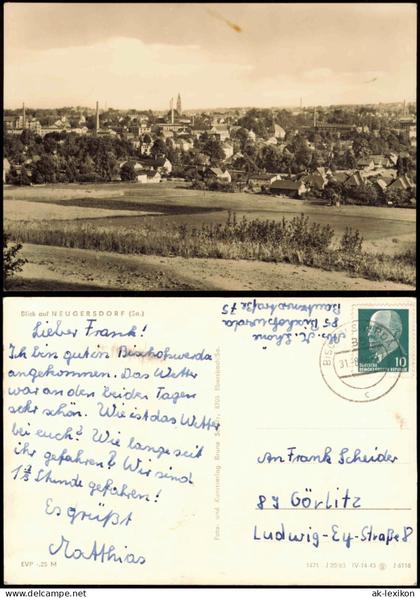 Blick auf NEUGERSDORF (Sa.)
Lieber Frank!
Ich bin gut in Bischofwerda
angekommen. Das Wetter
war an den beiden Tagen
sehr schön. Wie ist das Wetter
bei euch? Wie lange seit
ihr gefahren? Wir sind
1½ Stunde gefahren!
Es grüßt
Matthias
EVP -.25 M
Foto- und Kunstverlag Bruno Scholz, 8705 Ebersbach/Sa.
85 Bischofswerda
Bautznerstraße 75
31.
c
10
DEUTSCHE DEMOKRATISCHE REPUBLIK
An Frank Scheider
89 Görlitz
Ludwig-Ey-Straße 8
1471 J 20/65 IV-14-45 J 6118
© ak-kreisler.com